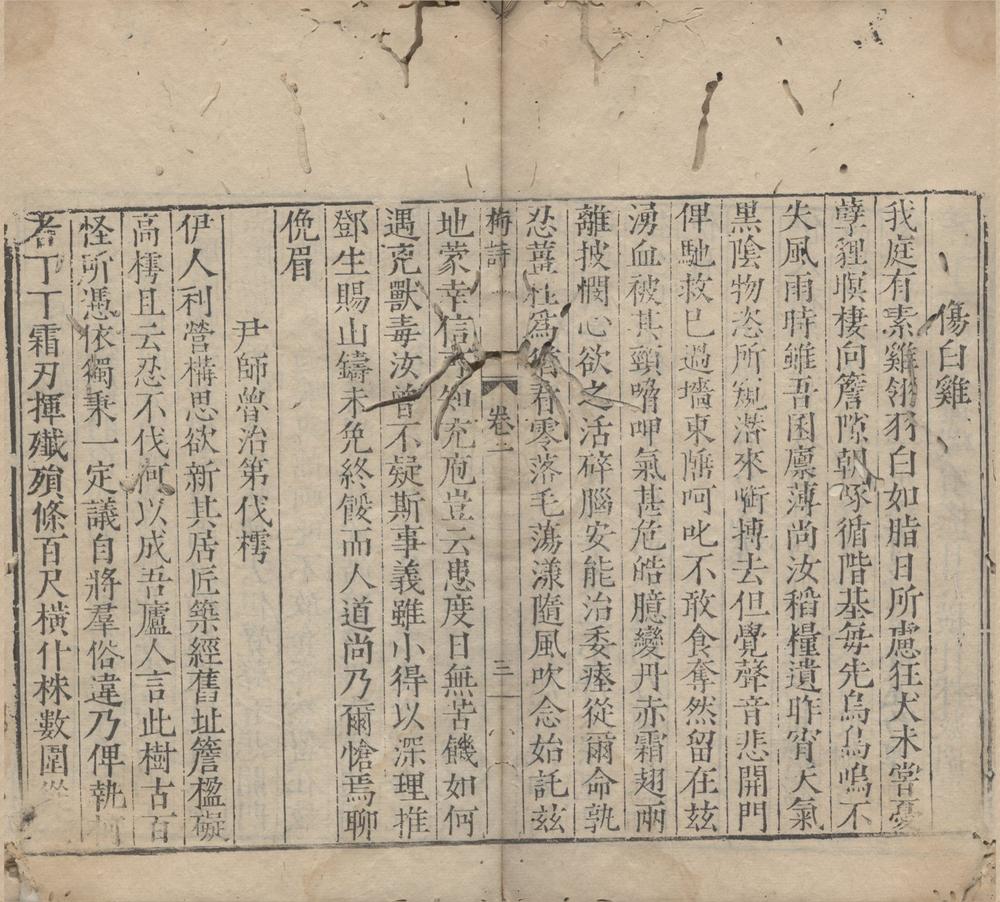 傷白雞
我庭有素雞翎羽白如脂日所慮狂犬未嘗憂
孽貍暝棲向簷隙朝啄循階基每先烏烏鳴不
失風雨時雖吾囷廩薄尚汝稻糧遺昨宵天氣
黑陰物恣所窺潛來銜搏去但覺聲音悲開門
俾馳救已過墻東陲呵叱不敢食奪然留在玆
湧血被其頸嗋呷氣甚危皓臆變丹赤霜翅兩
離披憫心欲之活碎腦安能治委瘞從爾命孰
忍薑桂爲看零落毛蕩漾隨風吹念始託玆
梅詩 卷二 三
地蒙幸信可知充庖豈云患度日無苦饑如何
遇兇獸毒汝曾不疑斯事義雖小得以深理推
鄧生賜山鑄未免終餒而人道尚乃爾愴焉聊
俛眉
尹師魯治第伐樗
伊人利營構思欲新其居匠築經舊址簷楹礙
高樗且云忍不伐何以成吾廬人言此樹古百
怪所憑依獨秉一定議自將羣俗違乃俾執柯
者丁丁霜刃揮殲殞條百尺橫什株數圍